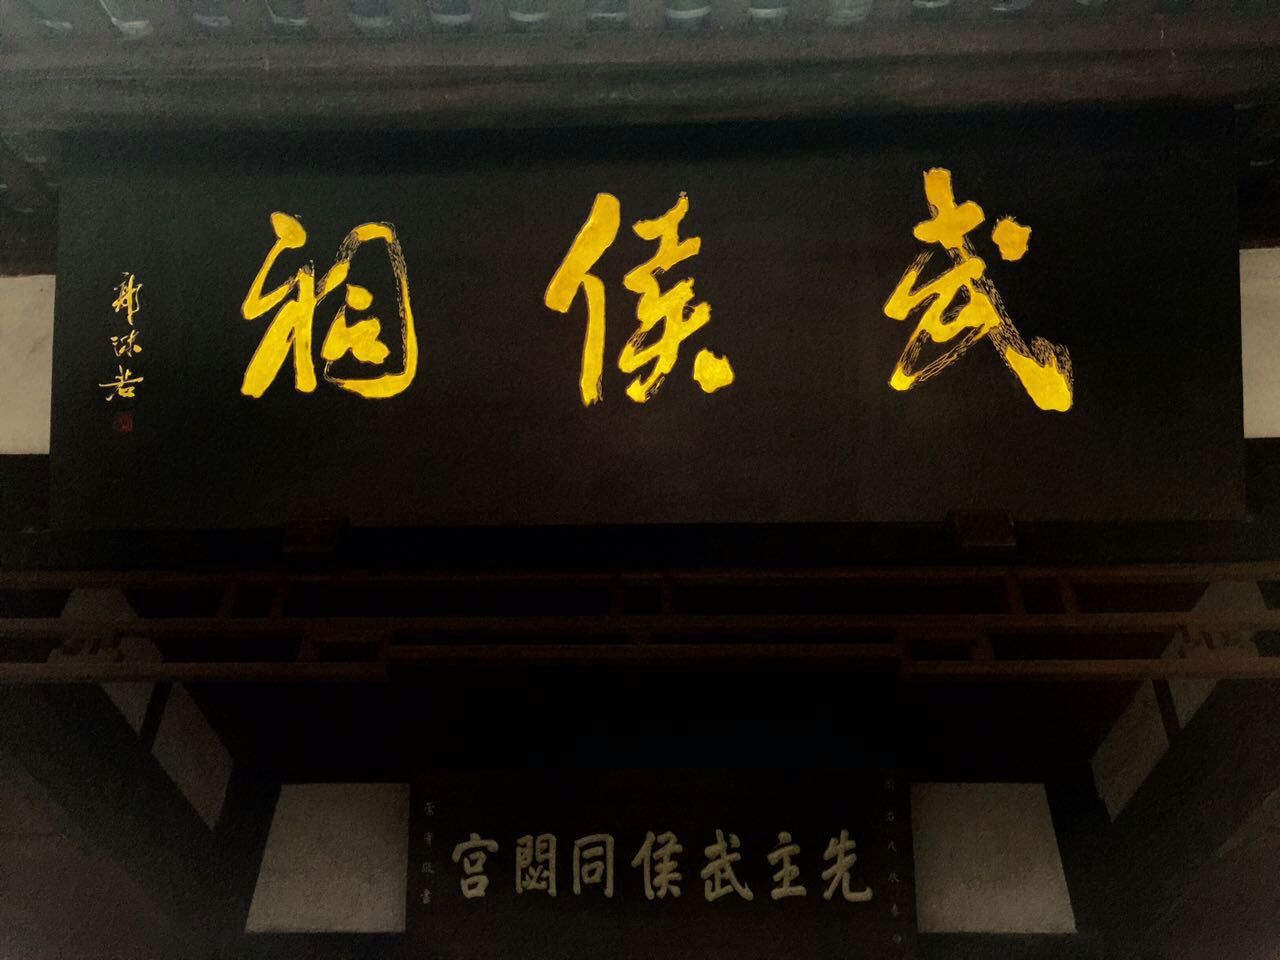 武侯祠
郭沫若
先主武侯同閟宮